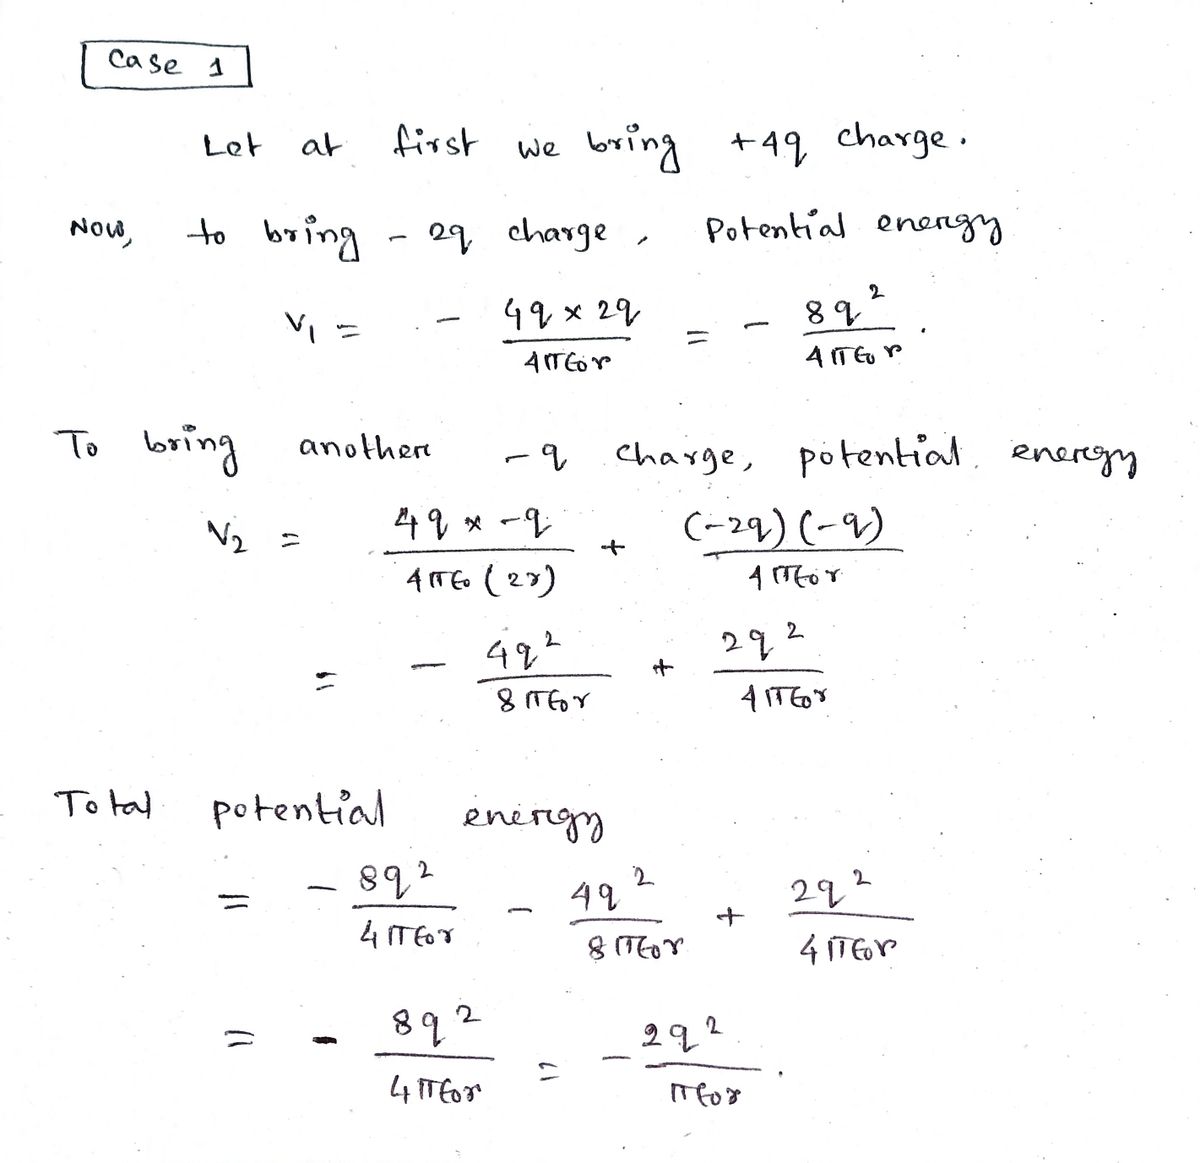 Case 1
Let at first we bring +4q charge.
Now, to bring - 2q charge, Potential energy
V₁ = - (4q × 2q)/(4πε₀r) = - 8q²/(4πε₀r).
To bring another -q charge, potential energy
V₂ = (4q × -q)/(4πε₀(2r)) + (-2q)(-q)/(4πε₀r)
= - 4q²/(8πε₀r) + 2q²/(4πε₀r)
Total potential energy
= - 8q²/(4πε₀r) - 4q²/(8πε₀r) + 2q²/(4πε₀r)
= - 8q²/(4πε₀r) = - 2q²/(πε₀r).